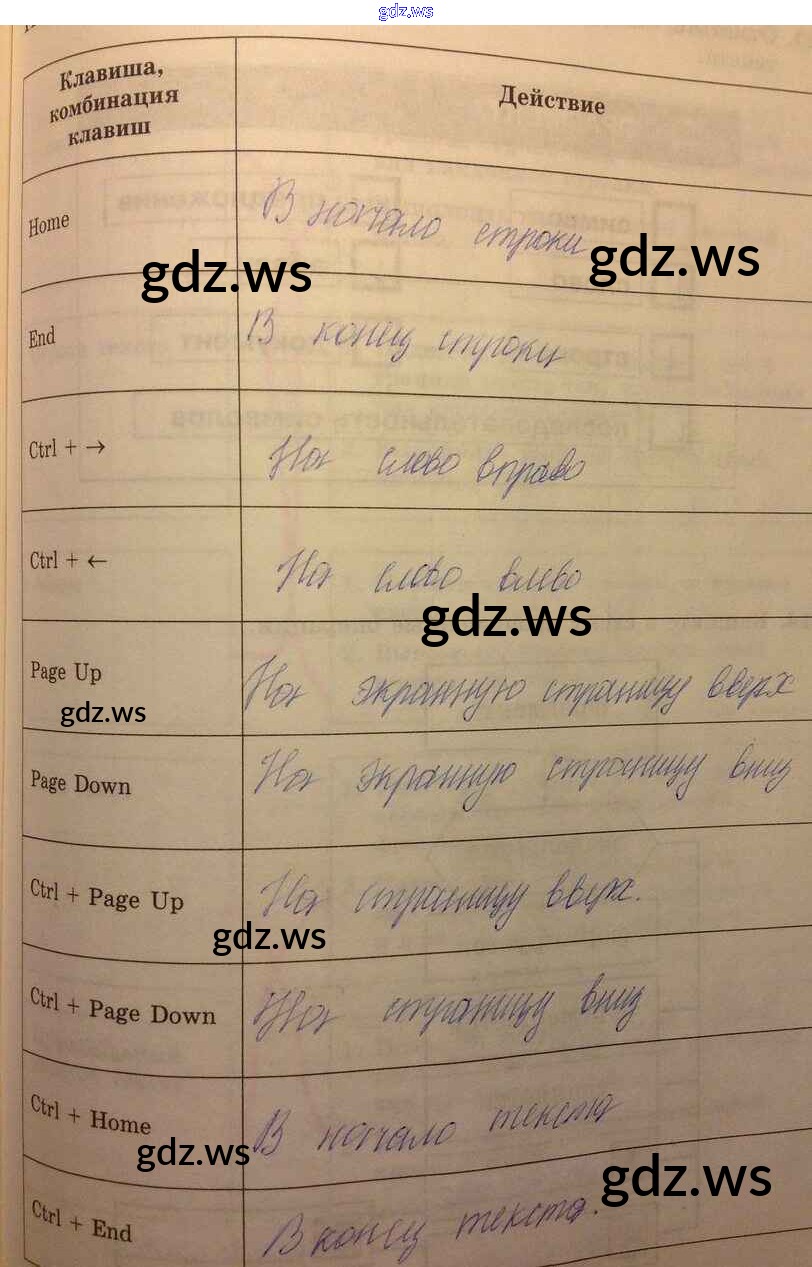 gdz.ws
Клавиша,
комбинация
клавиш
Действие
Home
В начало строки
gdz.ws
gdz.ws
End
В конец строки
Ctrl + →
На слово вправо
Ctrl + ←
На слово влево
gdz.ws
Page Up
На экранную страницу вверх
gdz.ws
Page Down
На экранную страницу вниз
Ctrl + Page Up
На страницу вверх.
gdz.ws
Ctrl + Page Down
На страницу вниз
Ctrl + Home
В начало текста
gdz.ws
gdz.ws
Ctrl + End
В конец текста.